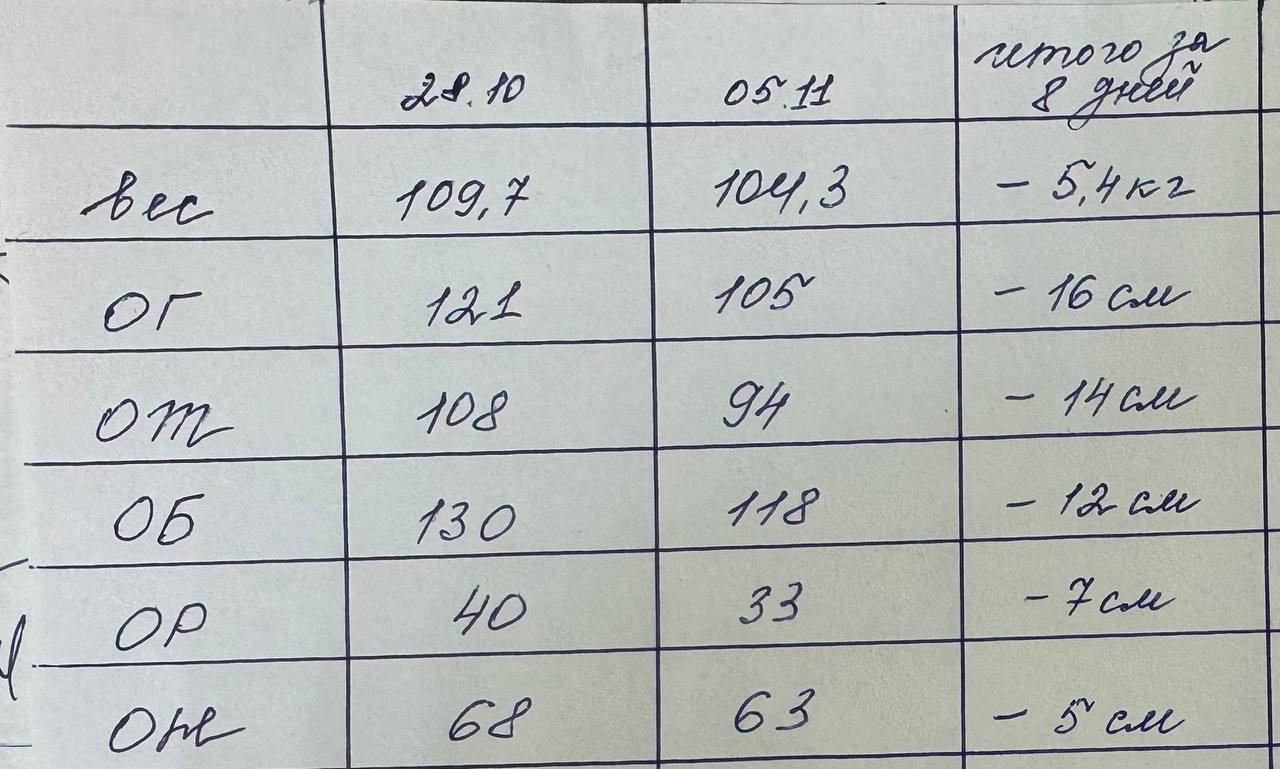 28.10 05.11 итого за
8 дней
вес 109,7 104,3 - 5,4 кг
ОГ 121 105 - 16 см
ОТ 108 94 - 14 см
ОБ 130 118 - 12 см
ОР 40 33 - 7 см
ОН 68 63 - 5 см